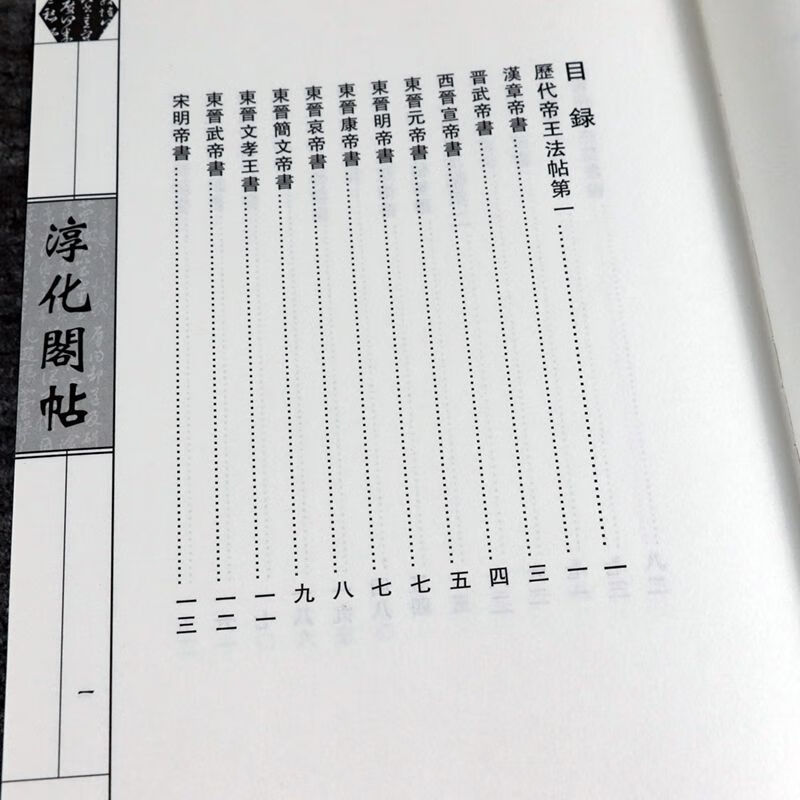 目録
歷代帝王法帖第一……一
漢章帝書……一
晋武帝書……三
西晉宣帝書……四
東晉元帝書……五
東晉明帝書……七
東晉康帝書……七
東晉哀帝書……八
東晉簡文帝書……九
東晉文孝王書……一一
東晉武帝書……一二
宋明帝書……一三
淳化閣帖
一